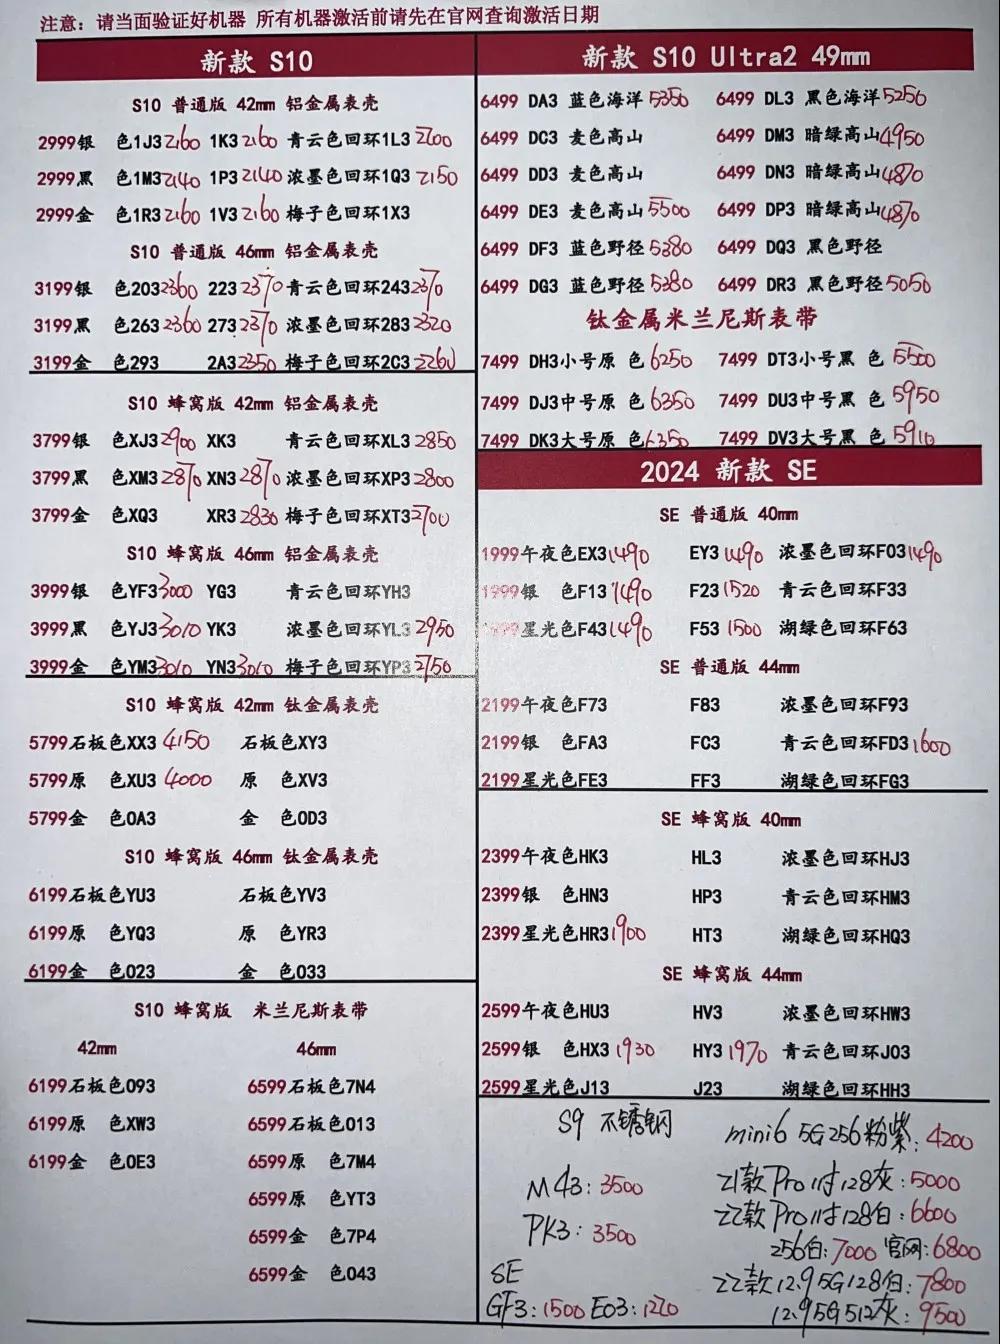 注意：请当面验证好机器 所有机器激活前请先在官网查询激活日期
新款 S10
S10 普通版 42mm 铝金属表壳
2999银 色1J3 2160 1K3 2160 青云色回环1L3 2200
2999黑 色1M3 2140 1P3 2140 浓墨色回环1Q3 2150
2999金 色1R3 2160 1V3 2160 梅子色回环1X3
S10 普通版 46mm 铝金属表壳
3199银 色203 2360 223 2370 青云色回环243 2370
3199黑 色263 2360 273 2370 浓墨色回环283 2320
3199金 色293 2A3 2350 梅子色回环2C3 2260
S10 蜂窝版 42mm 铝金属表壳
3799银 色XJ3 2900 XK3 青云色回环XL3 2850
3799黑 色XM3 2870 XN3 2870 浓墨色回环XP3 2800
3799金 色XQ3 XR3 2830 梅子色回环XT3 2700
S10 蜂窝版 46mm 铝金属表壳
3999银 色YF3 3000 YG3 青云色回环YH3
3999黑 色YJ3 3010 YK3 浓墨色回环YL3 2950
3999金 色YM3 3010 YN3 3010 梅子色回环YP3 2750
S10 蜂窝版 42mm 钛金属表壳
5799石板色XX3 4150 石板色XY3
5799原 色XU3 4000 原 色XV3
5799金 色0A3 金 色0D3
S10 蜂窝版 46mm 钛金属表壳
6199石板色YU3 石板色YV3
6199原 色YQ3 原 色YR3
6199金 色023 金 色033
S10 蜂窝版 米兰尼斯表带
42mm 46mm
6199石板色093 6599石板色7N4
6199原 色XW3 6599石板色013
6199金 色0E3 6599原 色7M4
6599原 色YT3
6599金 色7P4
6599金 色043
新款 S10 Ultra2 49mm
6499 DA3 蓝色海洋 5350 6499 DL3 黑色海洋 5250
6499 DC3 麦色高山 6499 DM3 暗绿高山 4950
6499 DD3 麦色高山 6499 DN3 暗绿高山 4870
6499 DE3 麦色高山 5500 6499 DP3 暗绿高山 4870
6499 DF3 蓝色野径 5380 6499 DQ3 黑色野径
6499 DG3 蓝色野径 5380 6499 DR3 黑色野径 5050
钛金属米兰尼斯表带
7499 DH3小号原 色 6250 7499 DT3小号黑 色 5500
7499 DJ3中号原 色 6350 7499 DU3中号黑 色 5950
7499 DK3大号原 色 6350 7499 DV3大号黑 色 5910
2024 新款 SE
SE 普通版 40mm
1999午夜色EX3 1490 EY3 1490 浓墨色回环F03 1490
1999银 色F13 1490 F23 1520 青云色回环F33
1999星光色F43 1490 F53 1500 湖绿色回环F63
SE 普通版 44mm
2199午夜色F73 F83 浓墨色回环F93
2199银 色FA3 FC3 青云色回环FD3 1600
2199星光色FE3 FF3 湖绿色回环FG3
SE 蜂窝版 40mm
2399午夜色HK3 HL3 浓墨色回环HJ3
2399银 色HN3 HP3 青云色回环HM3
2399星光色HR3 1900 HT3 湖绿色回环HQ3
SE 蜂窝版 44mm
2599午夜色HU3 HV3 浓墨色回环HW3
2599银 色HX3 1930 HY3 1970 青云色回环J03
2599星光色J13 J23 湖绿色回环HH3
S9 不锈钢
M43：3500
PK3：3500
SE
GF3：1500 E03：1270
mini6 5G256粉紫：4200
21款Pro11寸128灰：5000
22款Pro11寸128白：6600
256白：7000 官网：6800
22款12.9 5G128白：7800
12.9 5G512灰：9500